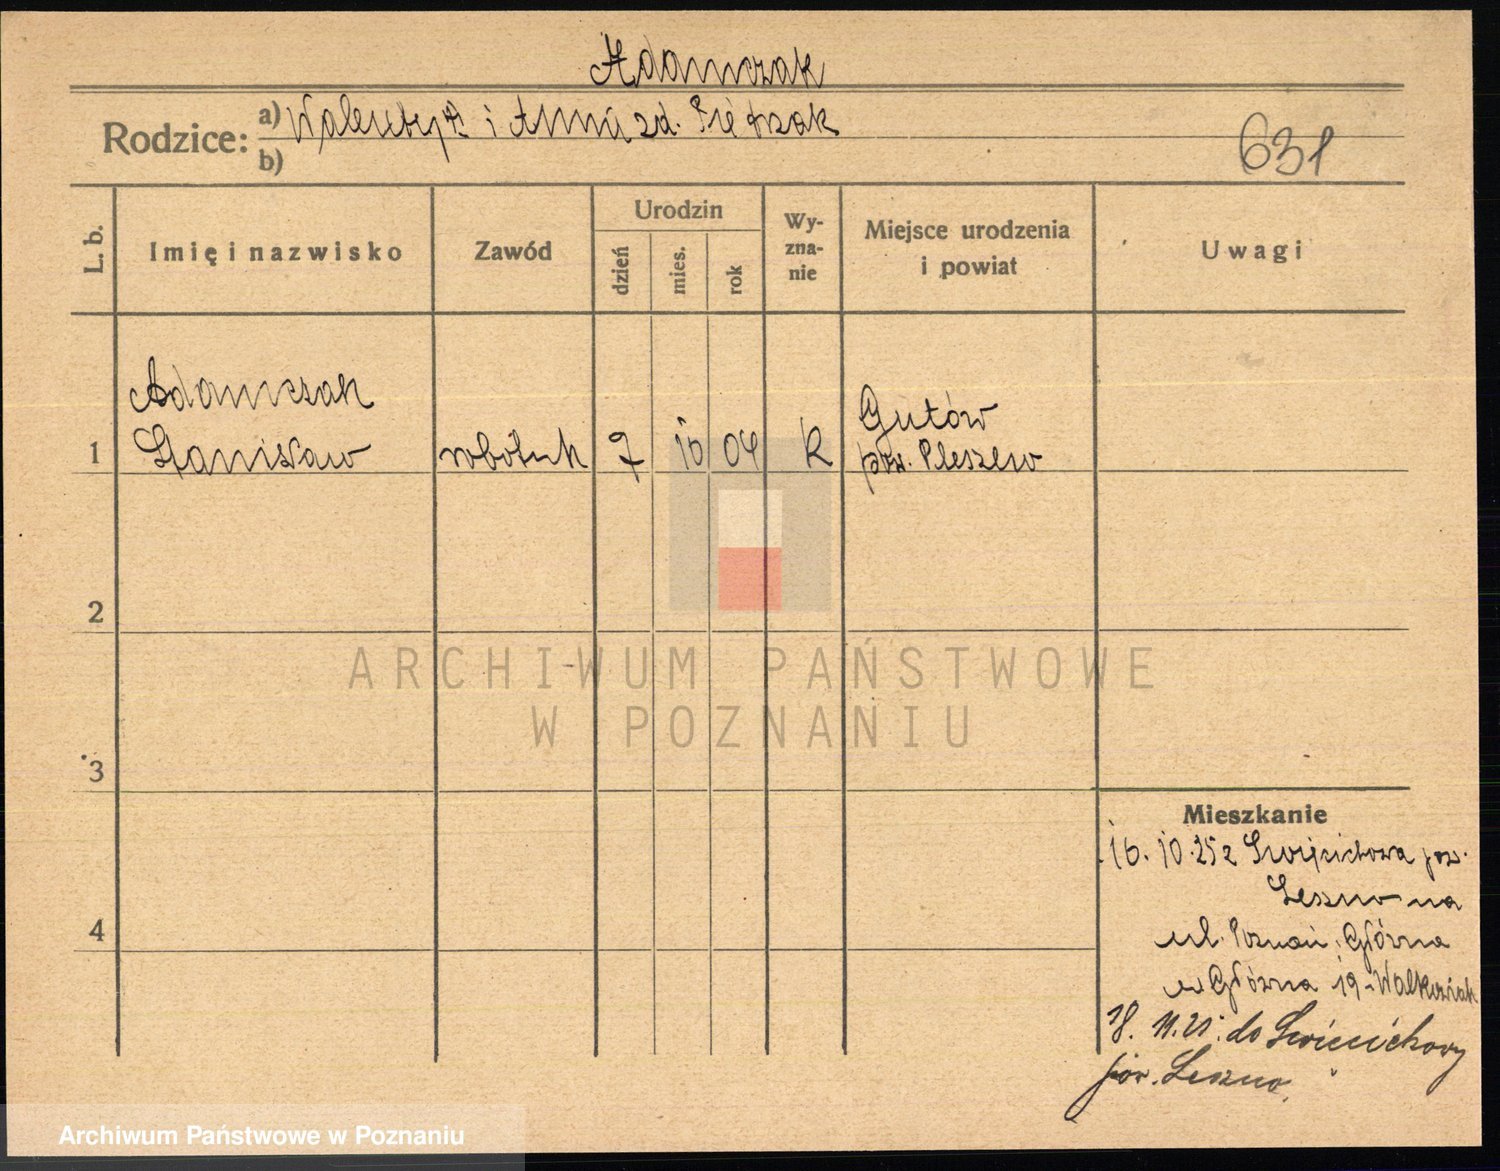 Adamczak
Rodzice: a) Walenty i Anna zd. Pietrzak
b)
631
L. b.
Imię i nazwisko
Zawód
Urodzin
dzień
mies.
rok
Wy-
zna-
nie
Miejsce urodzenia
i powiat
Uwagi
Adamczak
1 Stanisław robotnik 7 10 04 k Gutów
pow. Pleszew
2
3
4
ARCHIWUM PAŃSTWOWE
W POZNANIU
Mieszkanie
16. 10. 25 z Święciechowa pow.
Leszno na
ul. Poznań, Główna
Główna 19
18. 11. 25. do Święciechowy
pow. Leszno.
Archiwum Państwowe w Poznaniu